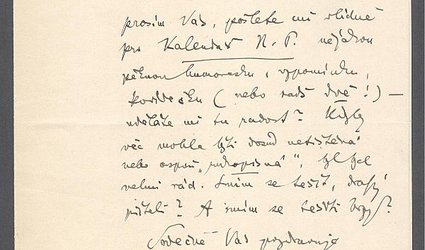 prosím Vás, pošlete mi vlídně
pro Kalendář N. P. nějakou
pěknou humoresku, vzpomínku,
povídečku (nebo radš dvě!) —
uděláte mi tu radost? Kdyby
věc mohla být dosud netištěná
nebo aspoň „rukopisná", byl bych
velmi rád. Smím se těšit, drahý
příteli? A smím se těšit brzy?
Srdečně Vás pozdravuje